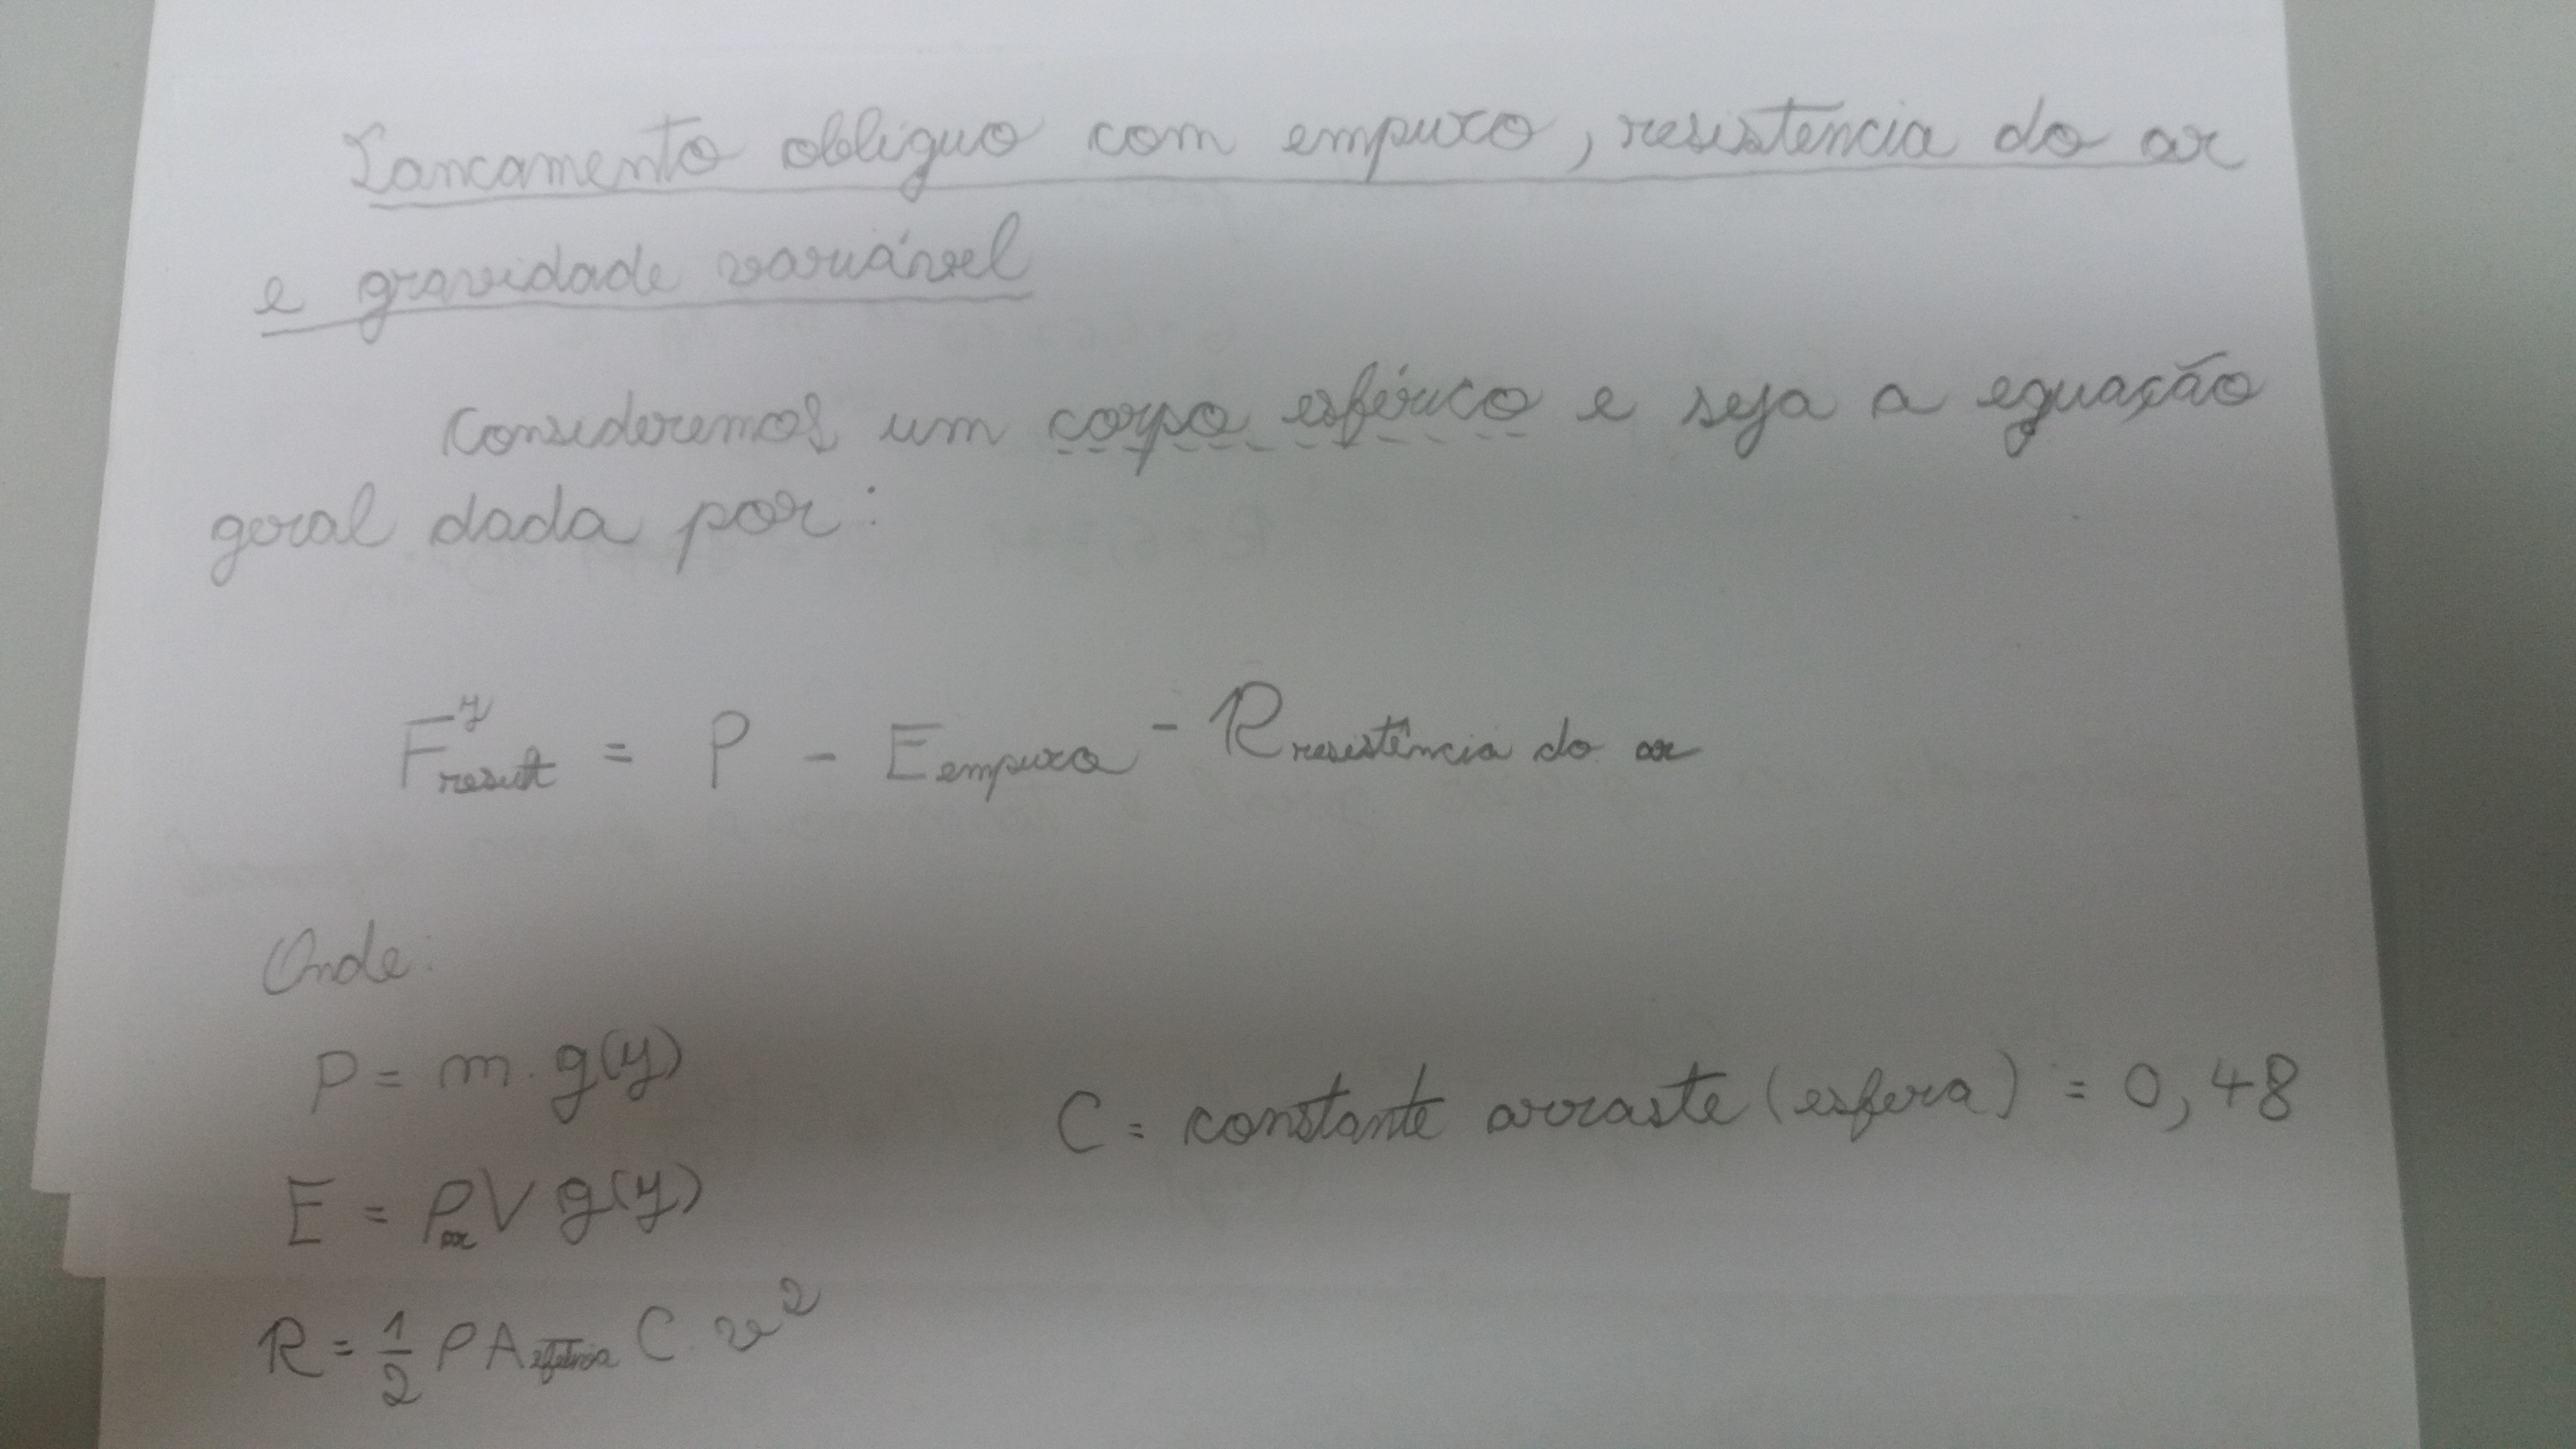 Lancamento obliquo com empuxo, resistencia do ar
e gravidade variável
Consideremos um corpo esférico e seja a equação
geral dada por:
F^y_result = P - E_empuxo - R_resistência do ar
Onde:
P = m.g(y)
C = constante arraste (esfera) = 0,48
E = ρ_ar V g(y)
R = 1/2 ρ A C. v²